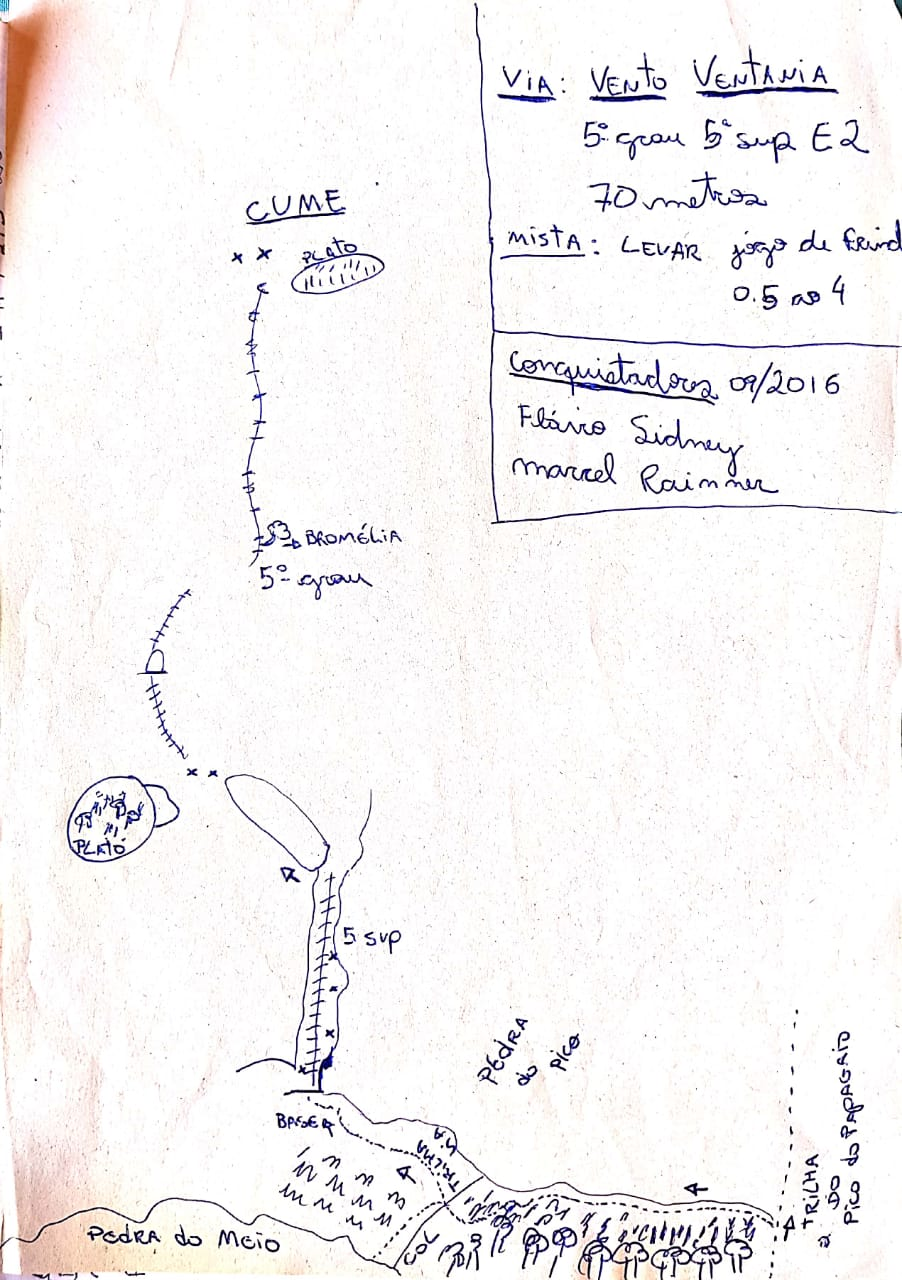 VIA: VENTO VENTANIA
5º grau 5º sup E2
70 metros
MISTA: LEVAR jogo de
0.5 ao 4
Conquistadores 09/2016
Flávio Sidney
Marcel Rainner
CUME
x x PLATÔ
BROMÉLIA
5º grau
x x
PLATÔ
5 sup
PEDRA
do PICO
BASE
TRILHA
VIA
TRILHA
DO
PICO do PAPAGAIO
COL
PEDRA do MEIO